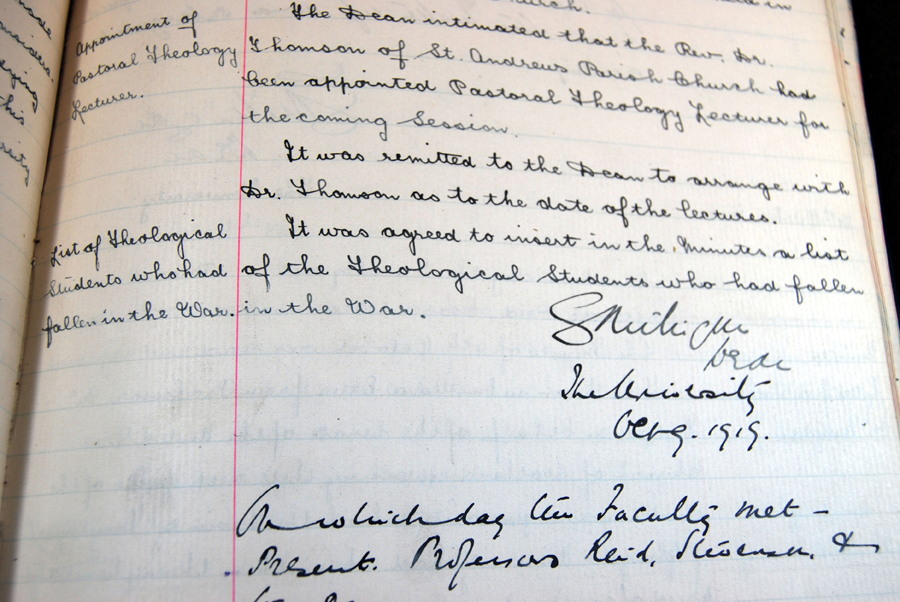 Appointment of
Pastoral Theology
Lecturer.
The Dean intimated that the Rev. Dr.
Thomson of St. Andrews Parish Church had
been appointed Pastoral Theology Lecturer for
the coming Session.
It was remitted to the Dean to arrange with
Dr. Thomson as to the date of the lectures.
List of Theological
Students who had
fallen in the War.
It was agreed to insert in the Minutes a list
of the Theological Students who had fallen
in the War.
G Milligan
The University
Oct 9. 1919.
On which day the Faculty met –
Present. Professors Reid, Stevenson, &